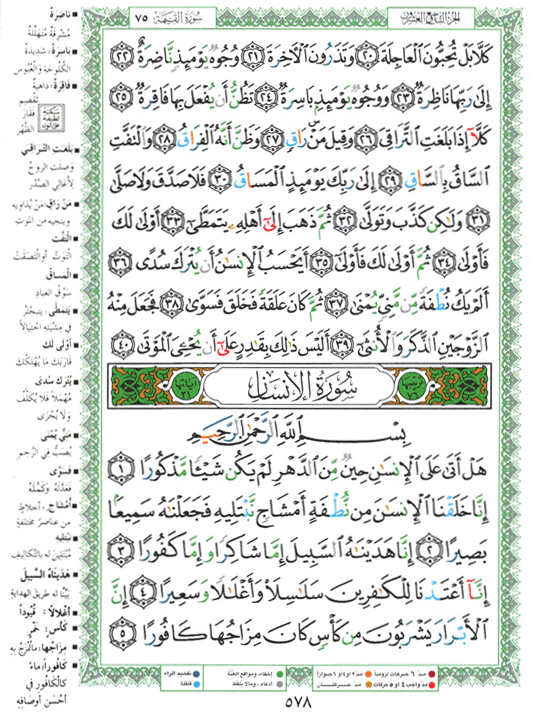 الجزء التاسع والعشرون
سُورَةُ القِيَامَةِ ٧٥
كَلَّا بَلْ تُحِبُّونَ ٱلْعَاجِلَةَ ٢٠ وَتَذَرُونَ ٱلْأَخِرَةَ ٢١ وُجُوهٌ يَوْمَئِذٍ نَّاضِرَةٌ ٢٢
إِلَىٰ رَبِّهَا نَاظِرَةٌ ٢٣ وَوُجُوهٌ يَوْمَئِذٍۭ بَاسِرَةٌ ٢٤ تَظُنُّ أَن يُفْعَلَ بِهَا فَاقِرَةٌ ٢٥
كَلَّآ إِذَا بَلَغَتِ ٱلتَّرَاقِىَ ٢٦ وَقِيلَ مَنْ رَاقٍ ٢٧ وَظَنَّ أَنَّهُ ٱلْفِرَاقُ ٢٨ وَٱلْتَفَّتِ
ٱلسَّاقُ بِٱلسَّاقِ ٢٩ إِلَىٰ رَبِّكَ يَوْمَئِذٍ ٱلْمَسَاقُ ٣٠ فَلَا صَدَّقَ وَلَا صَلَّىٰ
٣١ وَلَٰكِن كَذَّبَ وَتَوَلَّىٰ ٣٢ ثُمَّ ذَهَبَ إِلَىٰٓ أَهْلِهِۦ يَتَمَطَّىٰٓ ٣٣ أَوْلَىٰ لَكَ
فَأَوْلَىٰ ٣٤ ثُمَّ أَوْلَىٰ لَكَ فَأَوْلَىٰٓ ٣٥ أَيَحْسَبُ ٱلْإِنسَٰنُ أَن يُتْرَكَ سُدًى ٣٦
أَلَمْ يَكُ نُطْفَةً مِّن مَّنِىٍّ يُمْنَىٰ ٣٧ ثُمَّ كَانَ عَلَقَةً فَخَلَقَ فَسَوَّىٰ ٣٨ فَجَعَلَ مِنْهُ
ٱلزَّوْجَيْنِ ٱلذَّكَرَ وَٱلْأُنثَىٰٓ ٣٩ أَلَيْسَ ذَٰلِكَ بِقَٰدِرٍ عَلَىٰٓ أَن يُحْـِۧىَ ٱلْمَوْتَىٰ ٤٠
سُورَةُ الإِنسَانِ
ترتيبها ٧٦
آياتها ٣١
بِسْمِ ٱللَّهِ ٱلرَّحْمَٰنِ ٱلرَّحِيمِ
هَلْ أَتَىٰ عَلَى ٱلْإِنسَٰنِ حِينٌ مِّنَ ٱلدَّهْرِ لَمْ يَكُن شَيْـًٔا مَّذْكُورًا ١
إِنَّا خَلَقْنَا ٱلْإِنسَٰنَ مِن نُّطْفَةٍ أَمْشَاجٍ نَّبْتَلِيهِ فَجَعَلْنَٰهُ سَمِيعًۢا
بَصِيرًا ٢ إِنَّا هَدَيْنَٰهُ ٱلسَّبِيلَ إِمَّا شَاكِرًا وَإِمَّا كَفُورًا ٣
إِنَّآ أَعْتَدْنَا لِلْكَٰفِرِينَ سَلَٰسِلَا۟ وَأَغْلَٰلًا وَسَعِيرًا ٤ إِنَّ
ٱلْأَبْرَارَ يَشْرَبُونَ مِن كَأْسٍ كَانَ مِزَاجُهَا كَافُورًا ٥
ناضِرَةٌ
مُشْرِقَةٌ مُتَهَلِّلَةٌ
باسِرَةٌ : شَدِيدَةُ
الكُلُوحَةِ وَالعُبُوسِ
فاقِرَةٌ : داهِيةٌ
تَقْصِم
فَقَارَ
الظَّهْرِ
سكتة لطيفة
بَلَغَت التَّراقي
وَصَلَتِ الروحُ
لأعالي الصَّدْر
مَنْ رَاقٍ : مَنْ يُدَاوِيه
ويُنجيه من الموتِ
الْتَفَّت
الْتَوَتْ أو الْتَصَقَتْ
المَسَاقُ
سَوْقُ العباد
يَتَمَطَّى : يَتَبَخْتَرُ
في مِشْيَتِهِ اخْتِيَالاً
أَوْلَى لك
قَارَبَكَ مَا يُهْلِكُكَ
يُتْرَكَ سُدًى
مُهْمَلاً فَلا يُكَلَّفُ
وَلا يُجْزَى
مَنِيٍّ يُمْنَى
يُصَبُّ في الرَّحِمِ
فَسَوَّى
فَعَدَّلَهُ وَكَمَّلَهُ
أَمْشاجٍ : أَخْلاطٍ
من عناصرَ مختلفةٍ
نَبْتَلِيهِ
مُبْتَلِينَ له بالتَّكاليفِ
هَدَيْنَاهُ السَّبِيلَ
بَيَّنَّا له طريقَ الهدايةِ
أَغْلالاً : قُيُوداً
كَأْسٍ : خَمْرٍ
مِزاجُها : ما تُمْزَجُ بِهِ
كافُوراً : ماءً
كالكافُورِ في
أحْسَنِ أوصافِهِ
مدّ ٦ حركات لزوماً
مدّ ٢ او ٤ او ٦ جوازاً
إخفاء، ومواقع الغُنَّة
تفخيم الراء
مدّ واجب ٤ او ٥ حركات
مدّ حركتــان
ادغام، ومالا يُلفَظ
قلقلة
٥٧٨